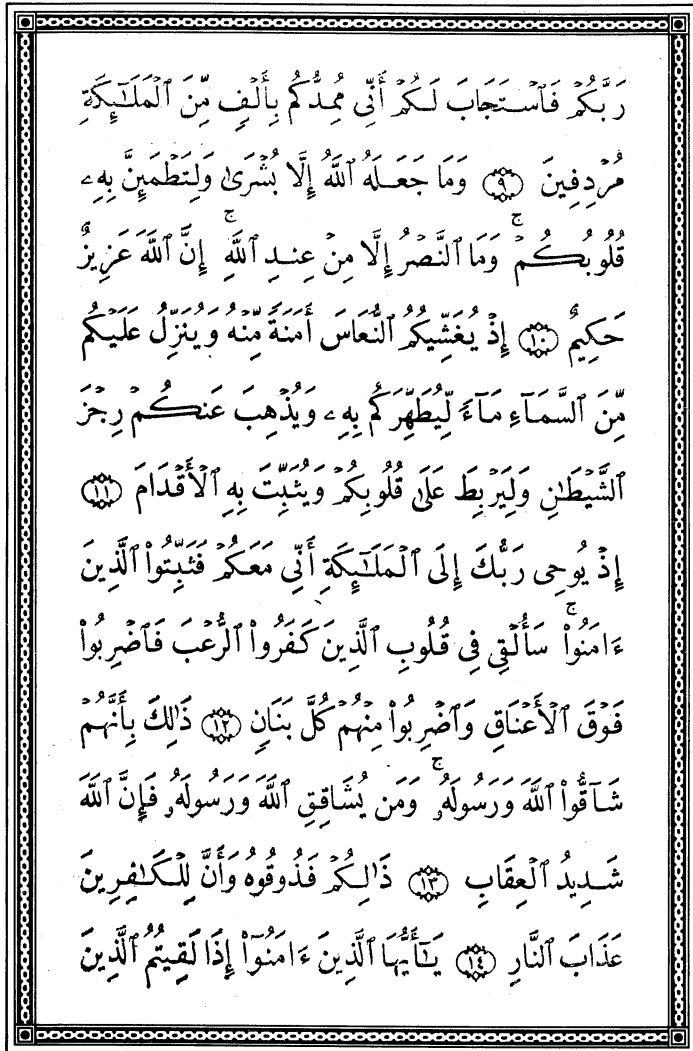 رَبَّكُمۡ فَٱسۡتَجَابَ لَكُمۡ أَنِّي مُمِدُّكُم بِأَلۡفٖ مِّنَ ٱلۡمَلَٰٓئِكَةِ
مُرۡدِفِينَ ٩ وَمَا جَعَلَهُ ٱللَّهُ إِلَّا بُشۡرَىٰ وَلِتَطۡمَئِنَّ بِهِۦ
قُلُوبُكُمۡۚ وَمَا ٱلنَّصۡرُ إِلَّا مِنۡ عِندِ ٱللَّهِۚ إِنَّ ٱللَّهَ عَزِيزٌ
حَكِيمٌ ١٠ إِذۡ يُغَشِّيكُمُ ٱلنُّعَاسَ أَمَنَةٗ مِّنۡهُ وَيُنَزِّلُ عَلَيۡكُم
مِّنَ ٱلسَّمَآءِ مَآءٗ لِّيُطَهِّرَكُم بِهِۦ وَيُذۡهِبَ عَنكُمۡ رِجۡزَ
ٱلشَّيۡطَٰنِ وَلِيَرۡبِطَ عَلَىٰ قُلُوبِكُمۡ وَيُثَبِّتَ بِهِ ٱلۡأَقۡدَامَ ١١
إِذۡ يُوحِي رَبُّكَ إِلَى ٱلۡمَلَٰٓئِكَةِ أَنِّي مَعَكُمۡ فَثَبِّتُواْ ٱلَّذِينَ
ءَامَنُواْۚ سَأُلۡقِي فِي قُلُوبِ ٱلَّذِينَ كَفَرُواْ ٱلرُّعۡبَ فَٱضۡرِبُواْ
فَوۡقَ ٱلۡأَعۡنَاقِ وَٱضۡرِبُواْ مِنۡهُمۡ كُلَّ بَنَانٖ ١٢ ذَٰلِكَ بِأَنَّهُمۡ
شَآقُّواْ ٱللَّهَ وَرَسُولَهُۥۚ وَمَن يُشَاقِقِ ٱللَّهَ وَرَسُولَهُۥ فَإِنَّ ٱللَّهَ
شَدِيدُ ٱلۡعِقَابِ ١٣ ذَٰلِكُمۡ فَذُوقُوهُ وَأَنَّ لِلۡكَٰفِرِينَ
عَذَابَ ٱلنَّارِ ١٤ يَٰٓأَيُّهَا ٱلَّذِينَ ءَامَنُوٓاْ إِذَا لَقِيتُمُ ٱلَّذِينَ